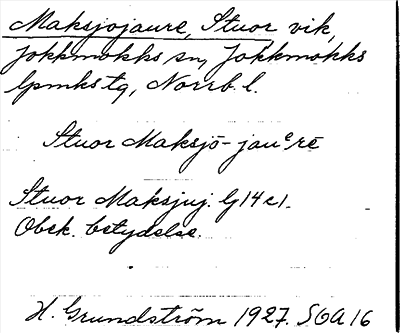 Maksjojaure, Stuor vik,
Jokkmokks sn, Jokkmokks
lpmks tg, Norrb. l.
Stuor Maksjō-jauᵉrē
Stuor Maksjuj. G14 e1.
Obek. betydelse.
H. Grundström 1927. SOA 16